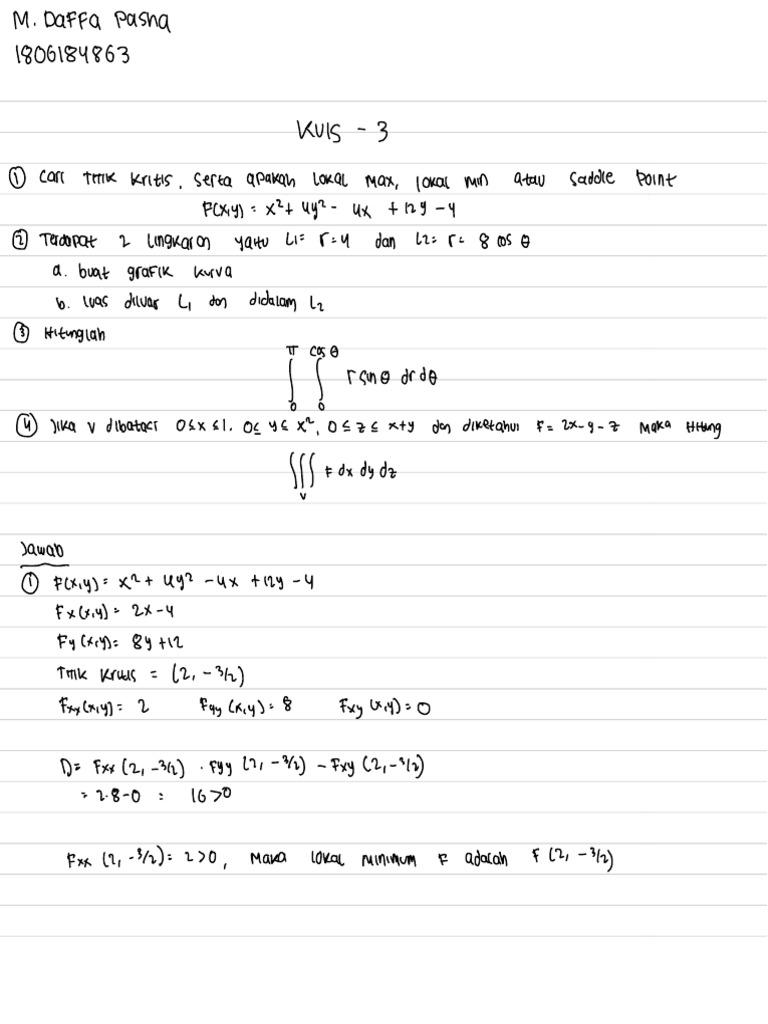 M. Daffa Pasha
1806184863
KUIS - 3
① Cari titik kritis, serta apakah lokal max, lokal min atau saddle point
F(x,y) = x² + 4y² - 4x + 12y - 4
② Terdapat 2 lingkaran yaitu L₁ = r = 4 dan L₂ = r = 8 cos θ
a. buat grafik kurva
b. luas diluar L₁ dan didalam L₂
③ Hitunglah
∫₀^π ∫₀^cos θ r sin θ dr dθ
④ Jika V dibatasi 0 ≤ x ≤ 1, 0 ≤ y ≤ x², 0 ≤ z ≤ x+y dan diketahui F = 2x-y-z maka hitung
∭_V F dx dy dz
Jawab
① F(x,y) = x² + 4y² - 4x + 12y - 4
Fx(x,y) = 2x - 4
Fy(x,y) = 8y + 12
Titik Kritis = (2, -3/2)
Fxx(x,y) = 2 Fyy(x,y) = 8 Fxy(x,y) = 0
D = Fxx(2, -3/2) . Fyy(2, -3/2) - Fxy(2, -3/2)
= 2.8-0 = 16 > 0
Fxx(2, -3/2) = 2 > 0, Maka lokal minimum F adalah F(2, -3/2)